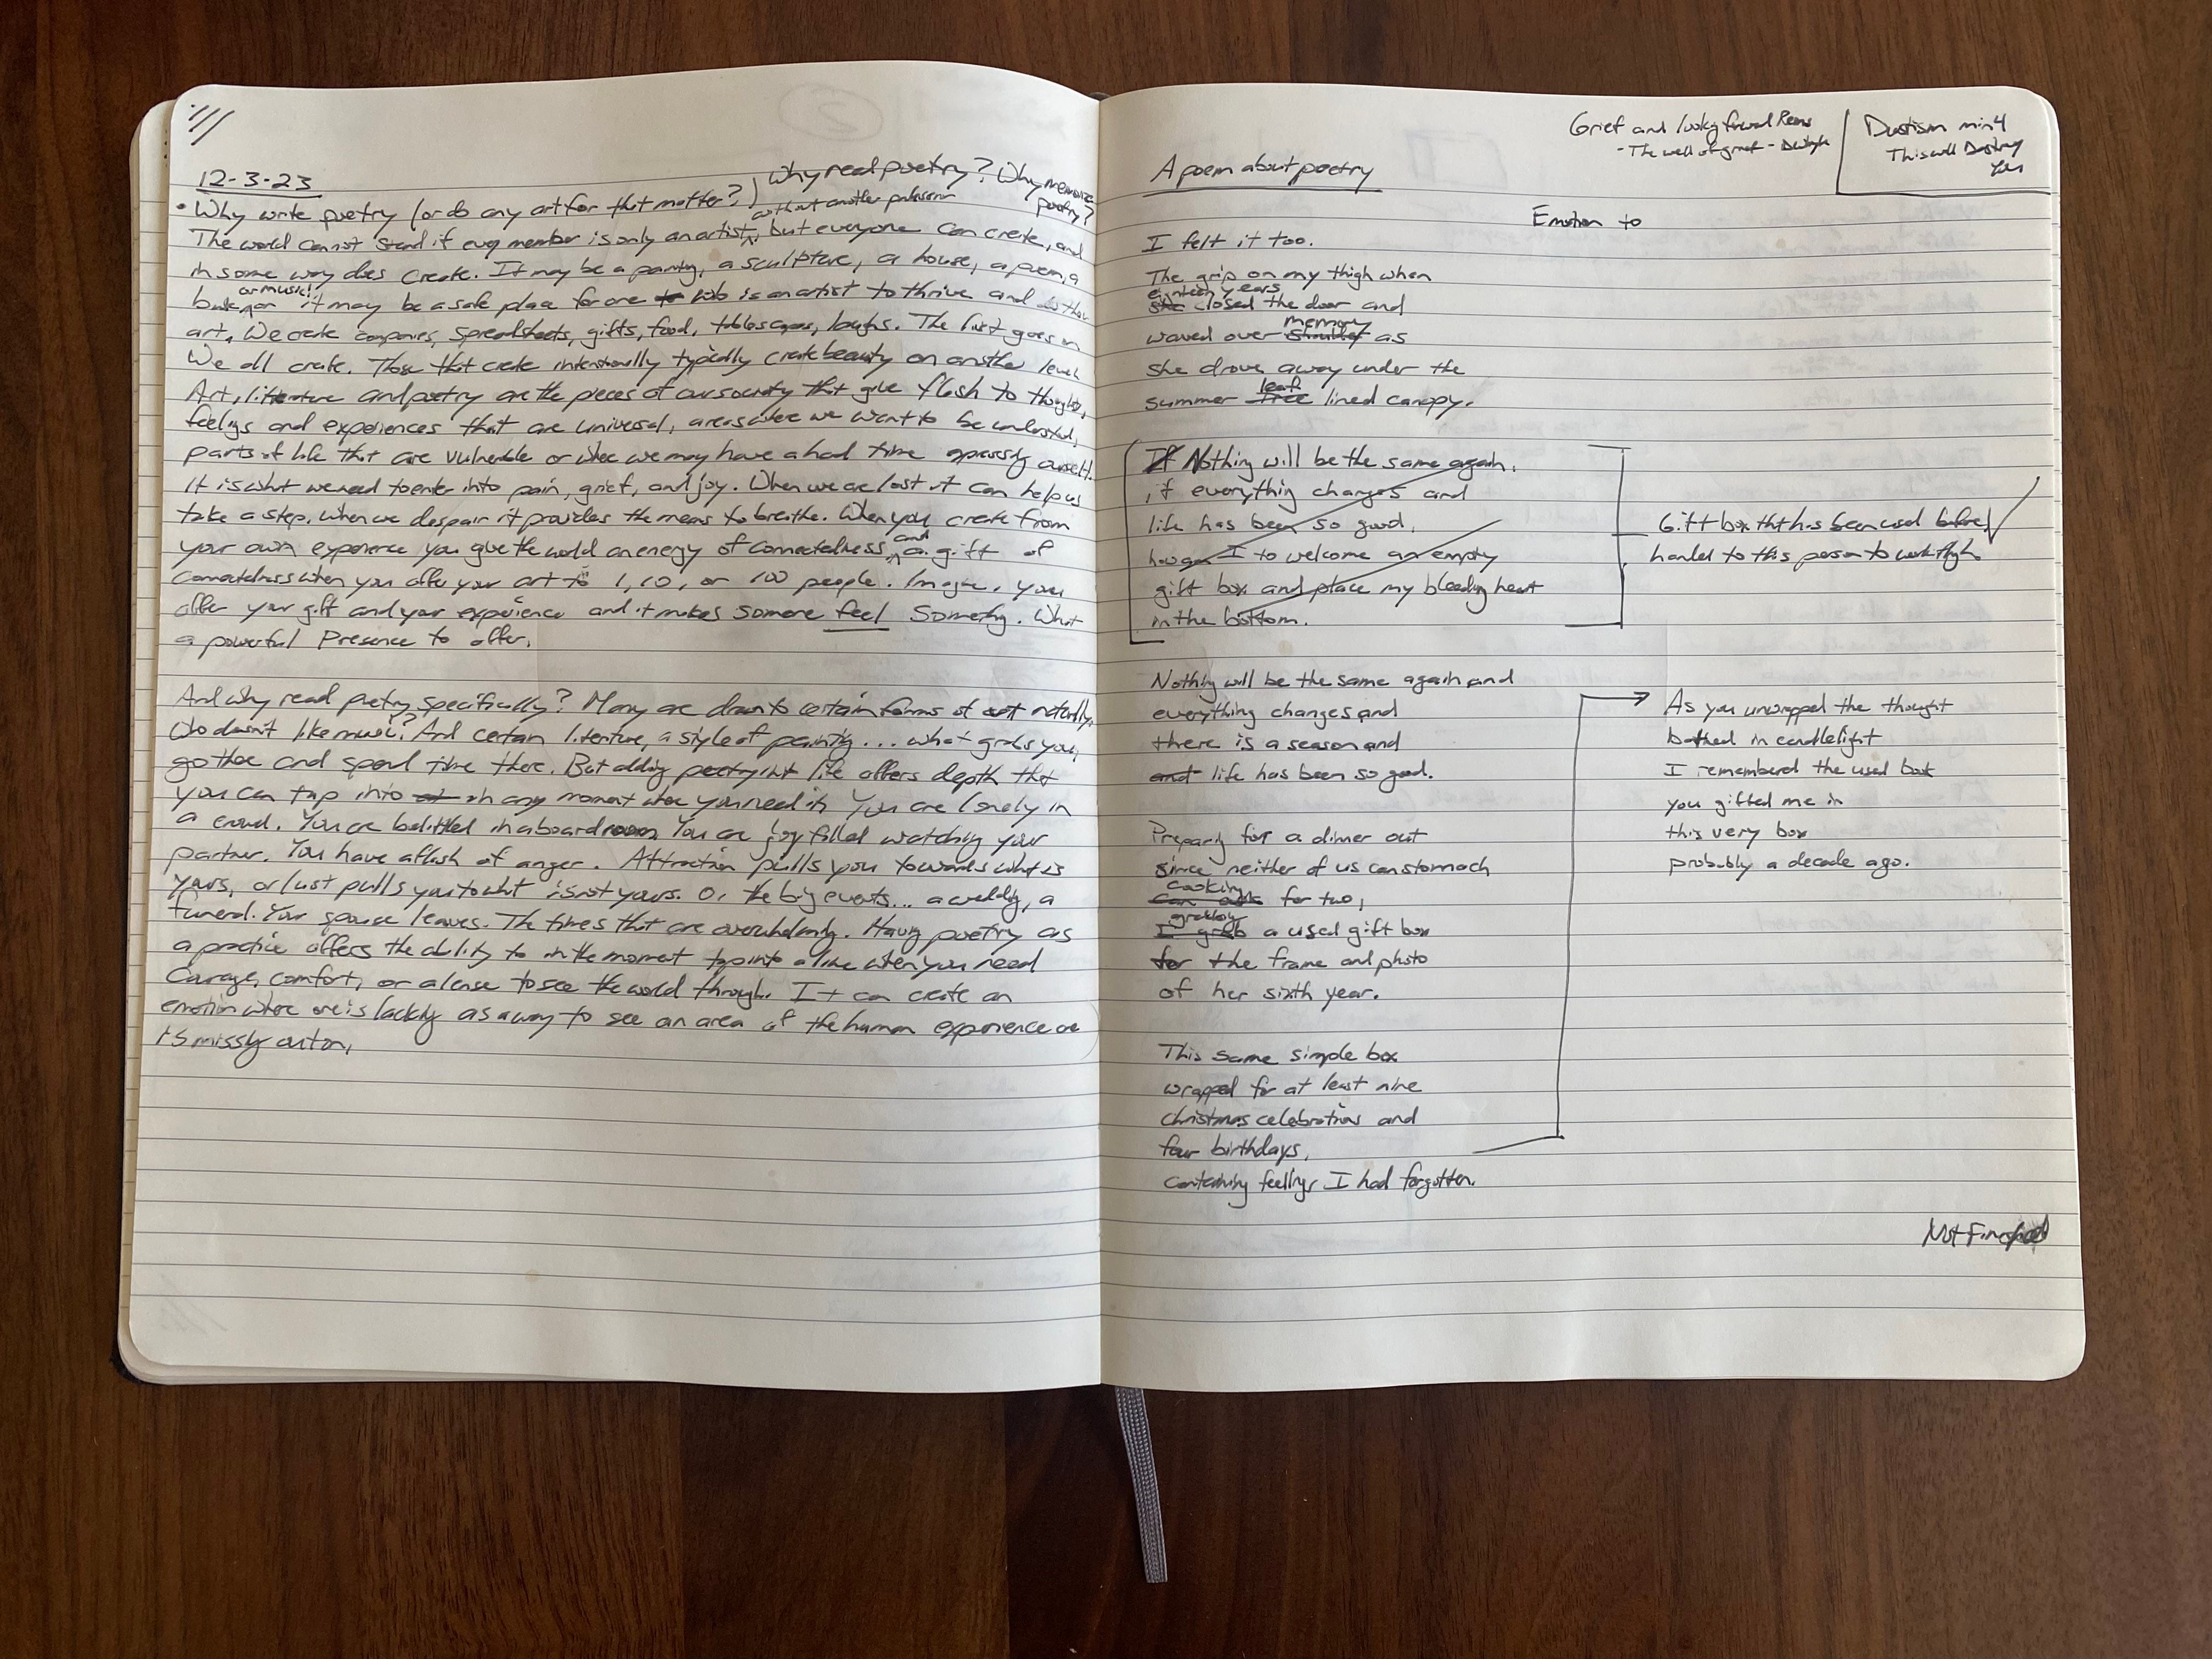 12-3-23
• Why write poetry (or do any art for that matter?) Why read poetry? Why memorize poetry?
without another profession
The world cannot stand if every member is only an artist, but everyone can create, and
in some way does create. It may be a painting, a sculpture, a house, a poem, a
or music!
or it may be a safe place for one to who is an artist to thrive and
art. We create companies, spreadsheets, gifts, food, tablescapes, laughs. The list goes on
We all create. Those that create intentionally typically create beauty on another level
Art, literature and poetry are the pieces of our society that give flesh to thoughts,
feelings and experiences that are universal, areas where we want to be understood,
parts of life that are vulnerable or where we may have a hard time expressing ourself.
It is what we need to enter into pain, grief, and joy. When we are lost it can help us
take a step. When we despair it provides the means to breathe. When you create from
your own experience you give the world an energy of connectedness and a gift of
connectedness when you offer your art to 1, 10, or 100 people. Imagine, you
offer your gift and your experience and it makes someone feel something. What
a powerful Presence to offer.
And why read poetry specifically? Many are drawn to certain forms of art naturally.
Who doesn't like music!? And certain literature, a style of painting... what grabs you,
go there and spend time there. But adding poetry into life offers depth that
you can tap into at in any moment when you need it. You are lonely in
a crowd. You are belittled in a boardroom. You are joy filled watching your
partner. You have a flash of anger. Attraction pulls you towards what is
yours, or lust pulls you to what is not yours. Or the big events... a wedding, a
funeral. Your spouse leaves. The times that are overwhelming. Having poetry as
a practice offers the ability to in the moment tap into a line when you need
Courage, comfort, or a lense to see the world through. It can create an
emotion where one is lacking as a way to see an area of the human experience one
is missing out on.
Grief and looking forward Poems
- The well of grief - D Whyte
Dustism min 4
This will Destroy
You
A poem about poetry
Emotion to
I felt it too.
The grip on my thigh when
eighteen years
she closed the door and
memory
waved over shoulder as
she drove away under the
leaf
summer tree lined canopy.
If Nothing will be the same again.
, if everything changes and
life has been so good,
how am I to welcome an empty
gift box and place my bleeding heart
in the bottom.
Gift box that has been used before
handed to this person to work through.
Nothing will be the same again and
everything changes and
there is a season and
and life has been so good.
Preparing for a dinner out
since neither of us can stomach
cooking
for two,
grabbing
I grab a used gift box
for the frame and photo
of her sixth year.
This same simple box
wrapped for at least nine
christmas celebrations and
four birthdays,
containing feelings I had forgotten.
As you unwrapped the thought
bathed in candlelight
I remembered the used book
you gifted me in
this very box
probably a decade ago.
Not Finished